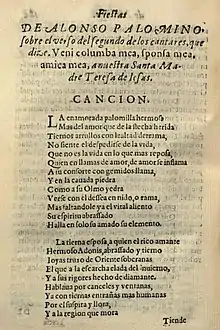 Fiestas
DE ALONSO PALOMINO.
sobre el verso del segundo de los cantares, que
dize. Veni columba mea, sponsa mea,
amica mea, a nuestra Santa Ma
dre Teresa de Iesus.
CANCION.
LA enamorada palomilla hermosa
Mas del amor que de la flecha herida
Tiernos arrullos con lealtad derrama,
No siente el despedirse de la vida,
Que no es la vida en lo que mas reposa,
Quien en llamas de amor, de amor se inflama
A su consorte con gemidos llama,
Y en la cauda piedra
Como a su Olmo yedra
Verse con el dessea en nido, o rama,
Mas faltandole ya el vital aliento
Su espiritu abrasado
Halla en solo su amado su elemento.
La tierna esposa, a quien el rico amante
Hermoso Adonis, abrasado y tierno
Ioyas traxo de Oriente soberanas
El que a la escarcha elada del inuierno,
Y a sus rigores hecho de diamante.
Hablaua por canceles y ventanas,
Ya con ternezas mas humanas
Por el sospira y llora,
Y a la region que mora
Tiende